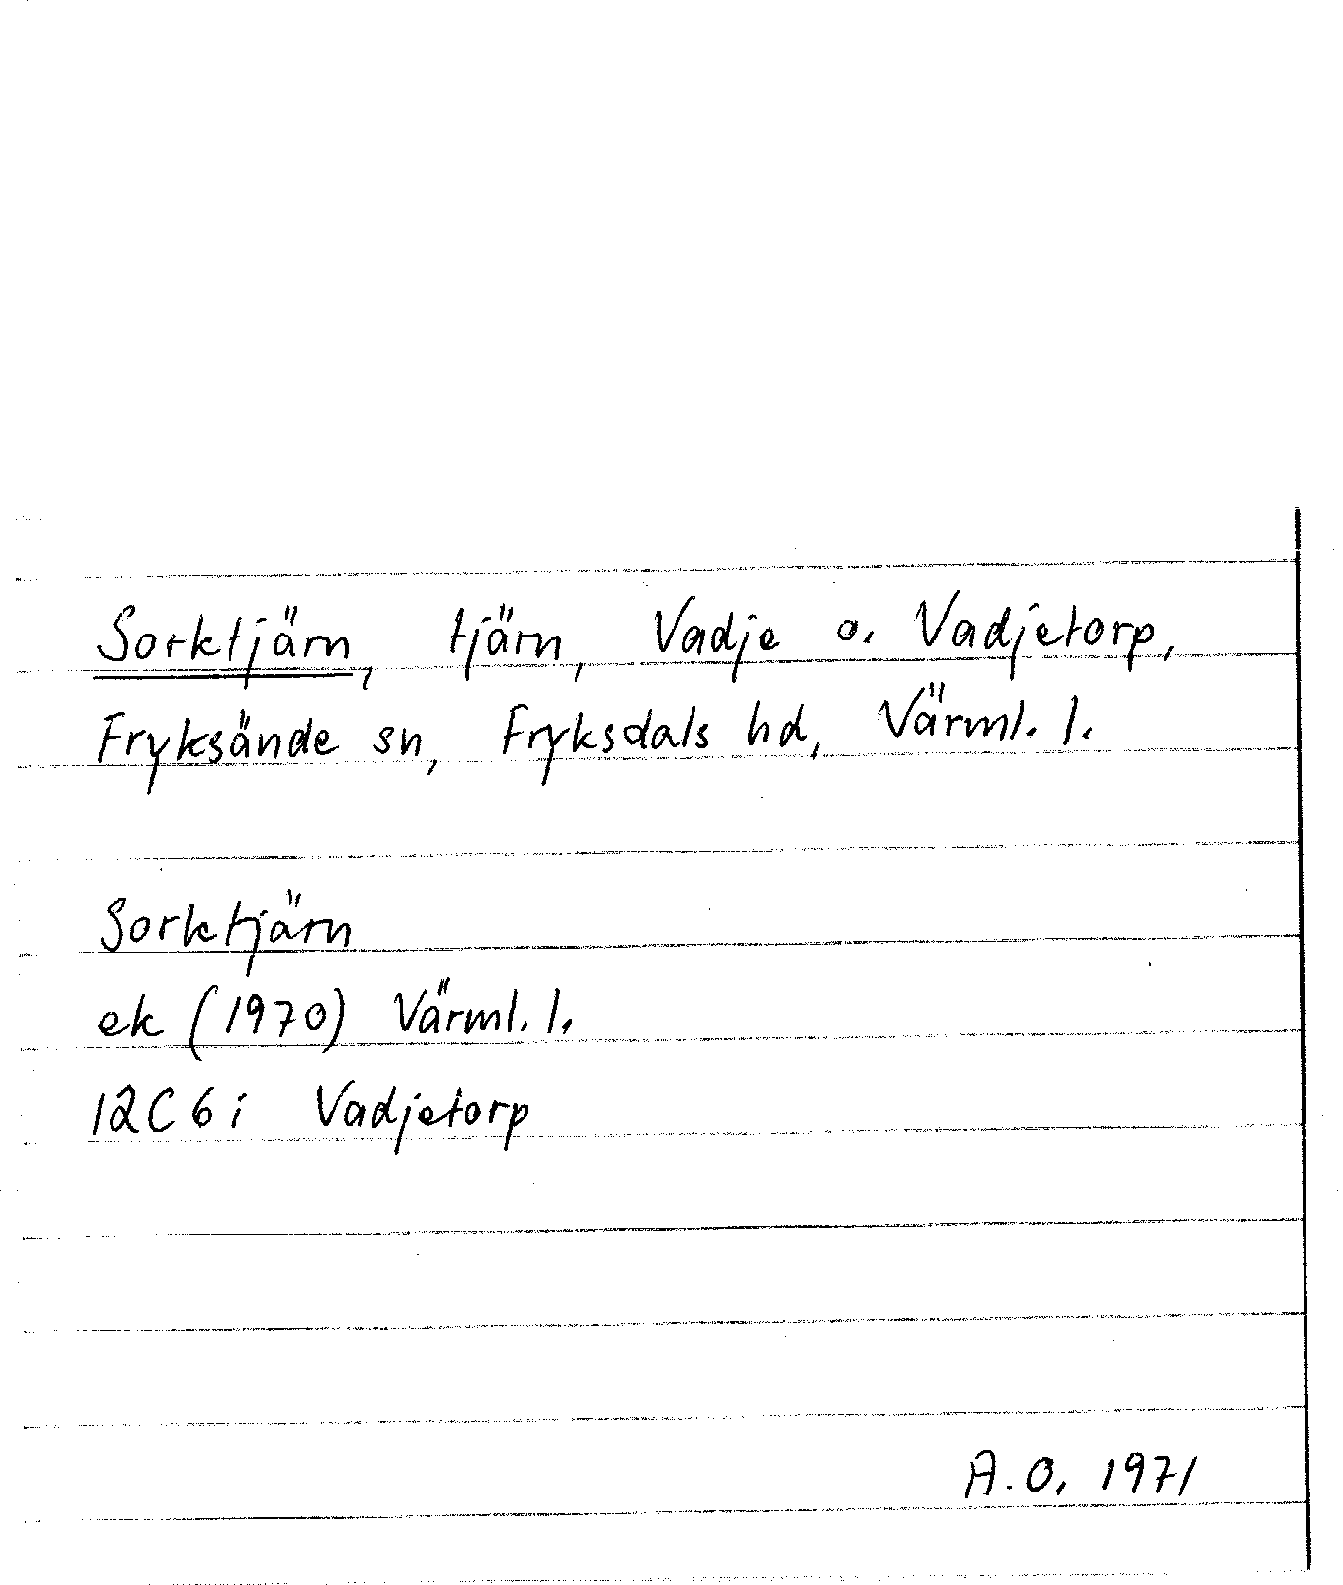 Sorktjärn, tjärn, Vadje o. Vadjetorp,
Fryksände sn, Fryksdals hd, Värml. l.
Sorktjärn
ek (1970) Värml. l.
12C 6 i Vadjetorp
A.O. 1971